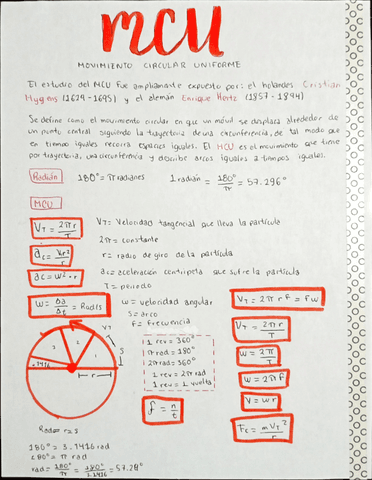 MCU
MOVIMIENTO CIRCULAR UNIFORME
El estudio del MCU fue ampliamente expuesto por: el holandes Cristian
Hygens (1629-1695) y el alemán Enrique Hertz (1857-1894)
Se define como el movimiento circular en que un móvil se desplaza alrededor de
un punto central siguiendo la trayectoria de una circunferencia, de tal modo que
en tiempo iguales recorra espacios iguales. El MCU es el movimiento que tiene
por trayectoria, una circunferencia y describe arcos iguales a tiempos iguales.
Radián 180° = π radianes 1 radián = 180°/π = 57.296°
MCU
VT = 2πr/T
VT = Velocidad tangencial que lleva la partícula
2π = constante
r = radio de giro de la partícula
ac = w² · r
ac = aceleración centripeta que sufre la partícula
T = periodo
w = Δa/Δt = Rad/s
w = velocidad angular
s = arco
f = frecuencia
VT = 2πrf = fw
VT = 2πr/T
w = 2π/T
w = 2πf
V = wr
Fc = mVT²/r
1 rev = 360°
π rad = 180°
2π rad = 360°
1 rev = 2π rad
1 rev = 1 vuelta
f = n/t
VT
s
1
2
3
.1416
r
Rad = r = s
180° = 3.1416 rad
180° = π rad
rad = 180°/π = 180°/3.1416 = 57.29°